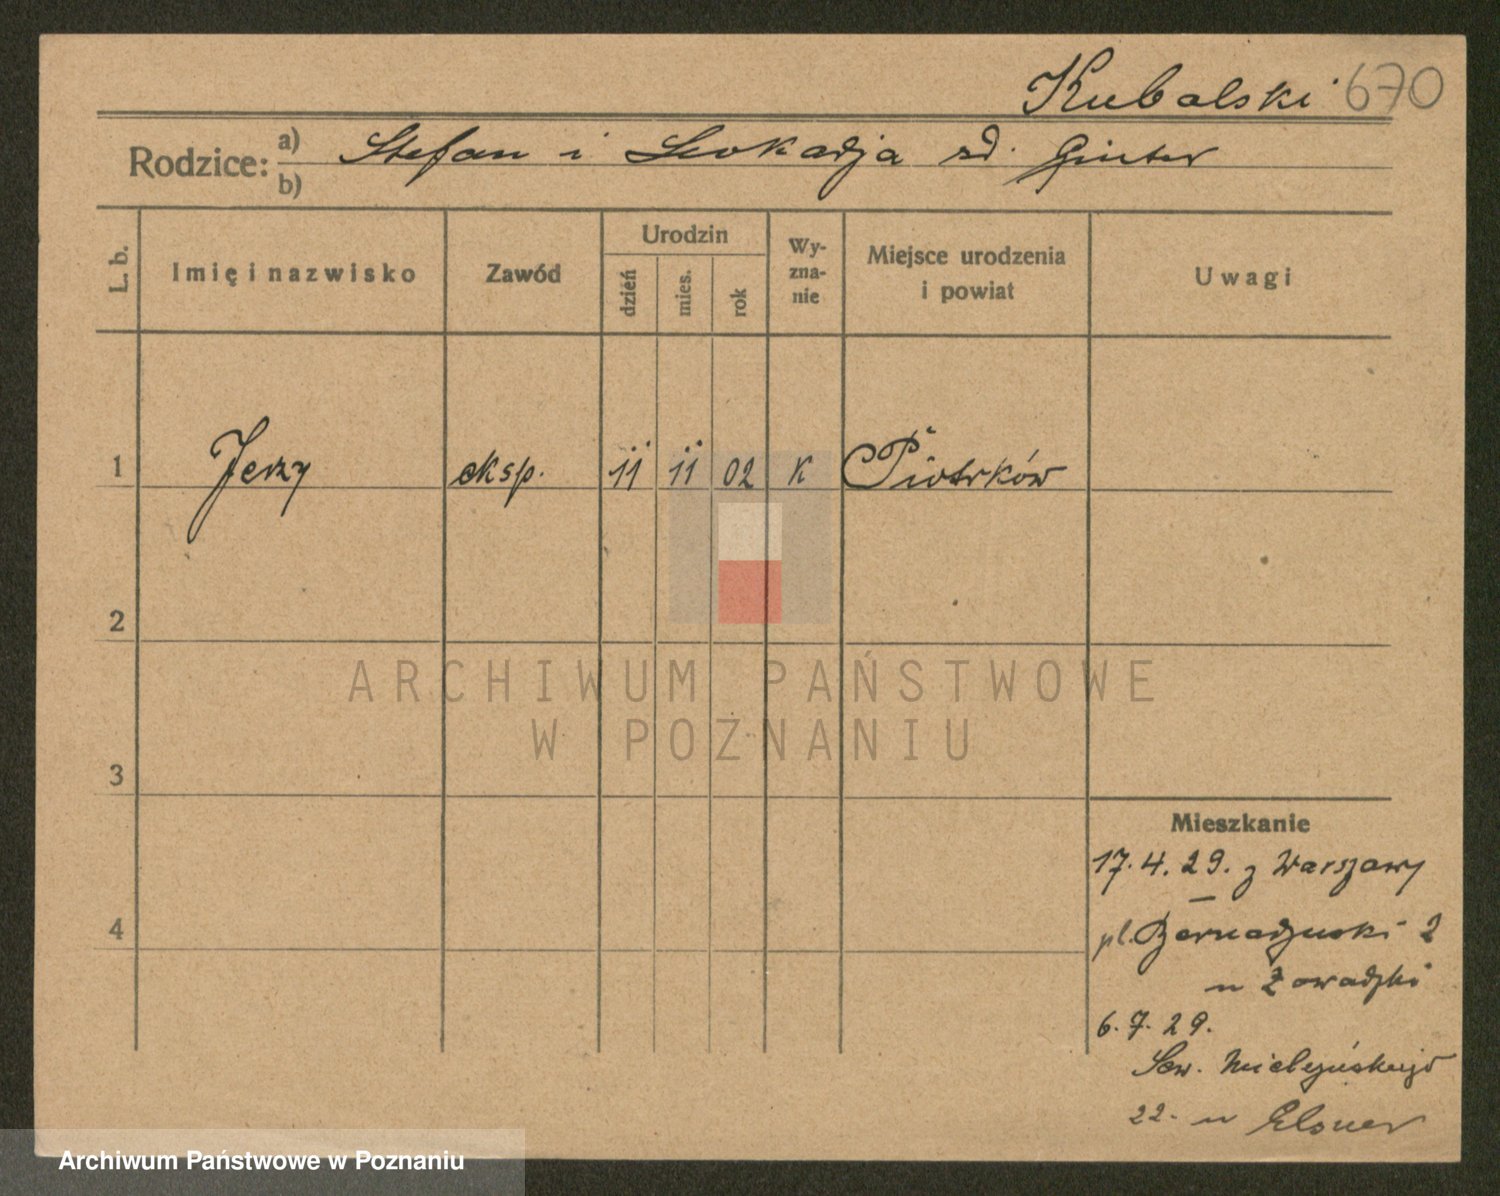 Kubalski 670
Rodzice: a) Stefan i Leokadja zd. Ginter
b)
L. b.
Imię i nazwisko
Zawód
Urodzin
dzień
mies.
rok
Wy-
zna-
nie
Miejsce urodzenia
i powiat
Uwagi
1 Jerzy eksp. 11 11 02 K Piotrków
2
3
4
ARCHIWUM PAŃSTWOWE
W POZNANIU
Mieszkanie
17.4.29. z Warszawy
pl. Bernadyński 2
u Zawadzki
6.7.29.
Sew. Mielżyńskiego
22. u Elsner
Archiwum Państwowe w Poznaniu